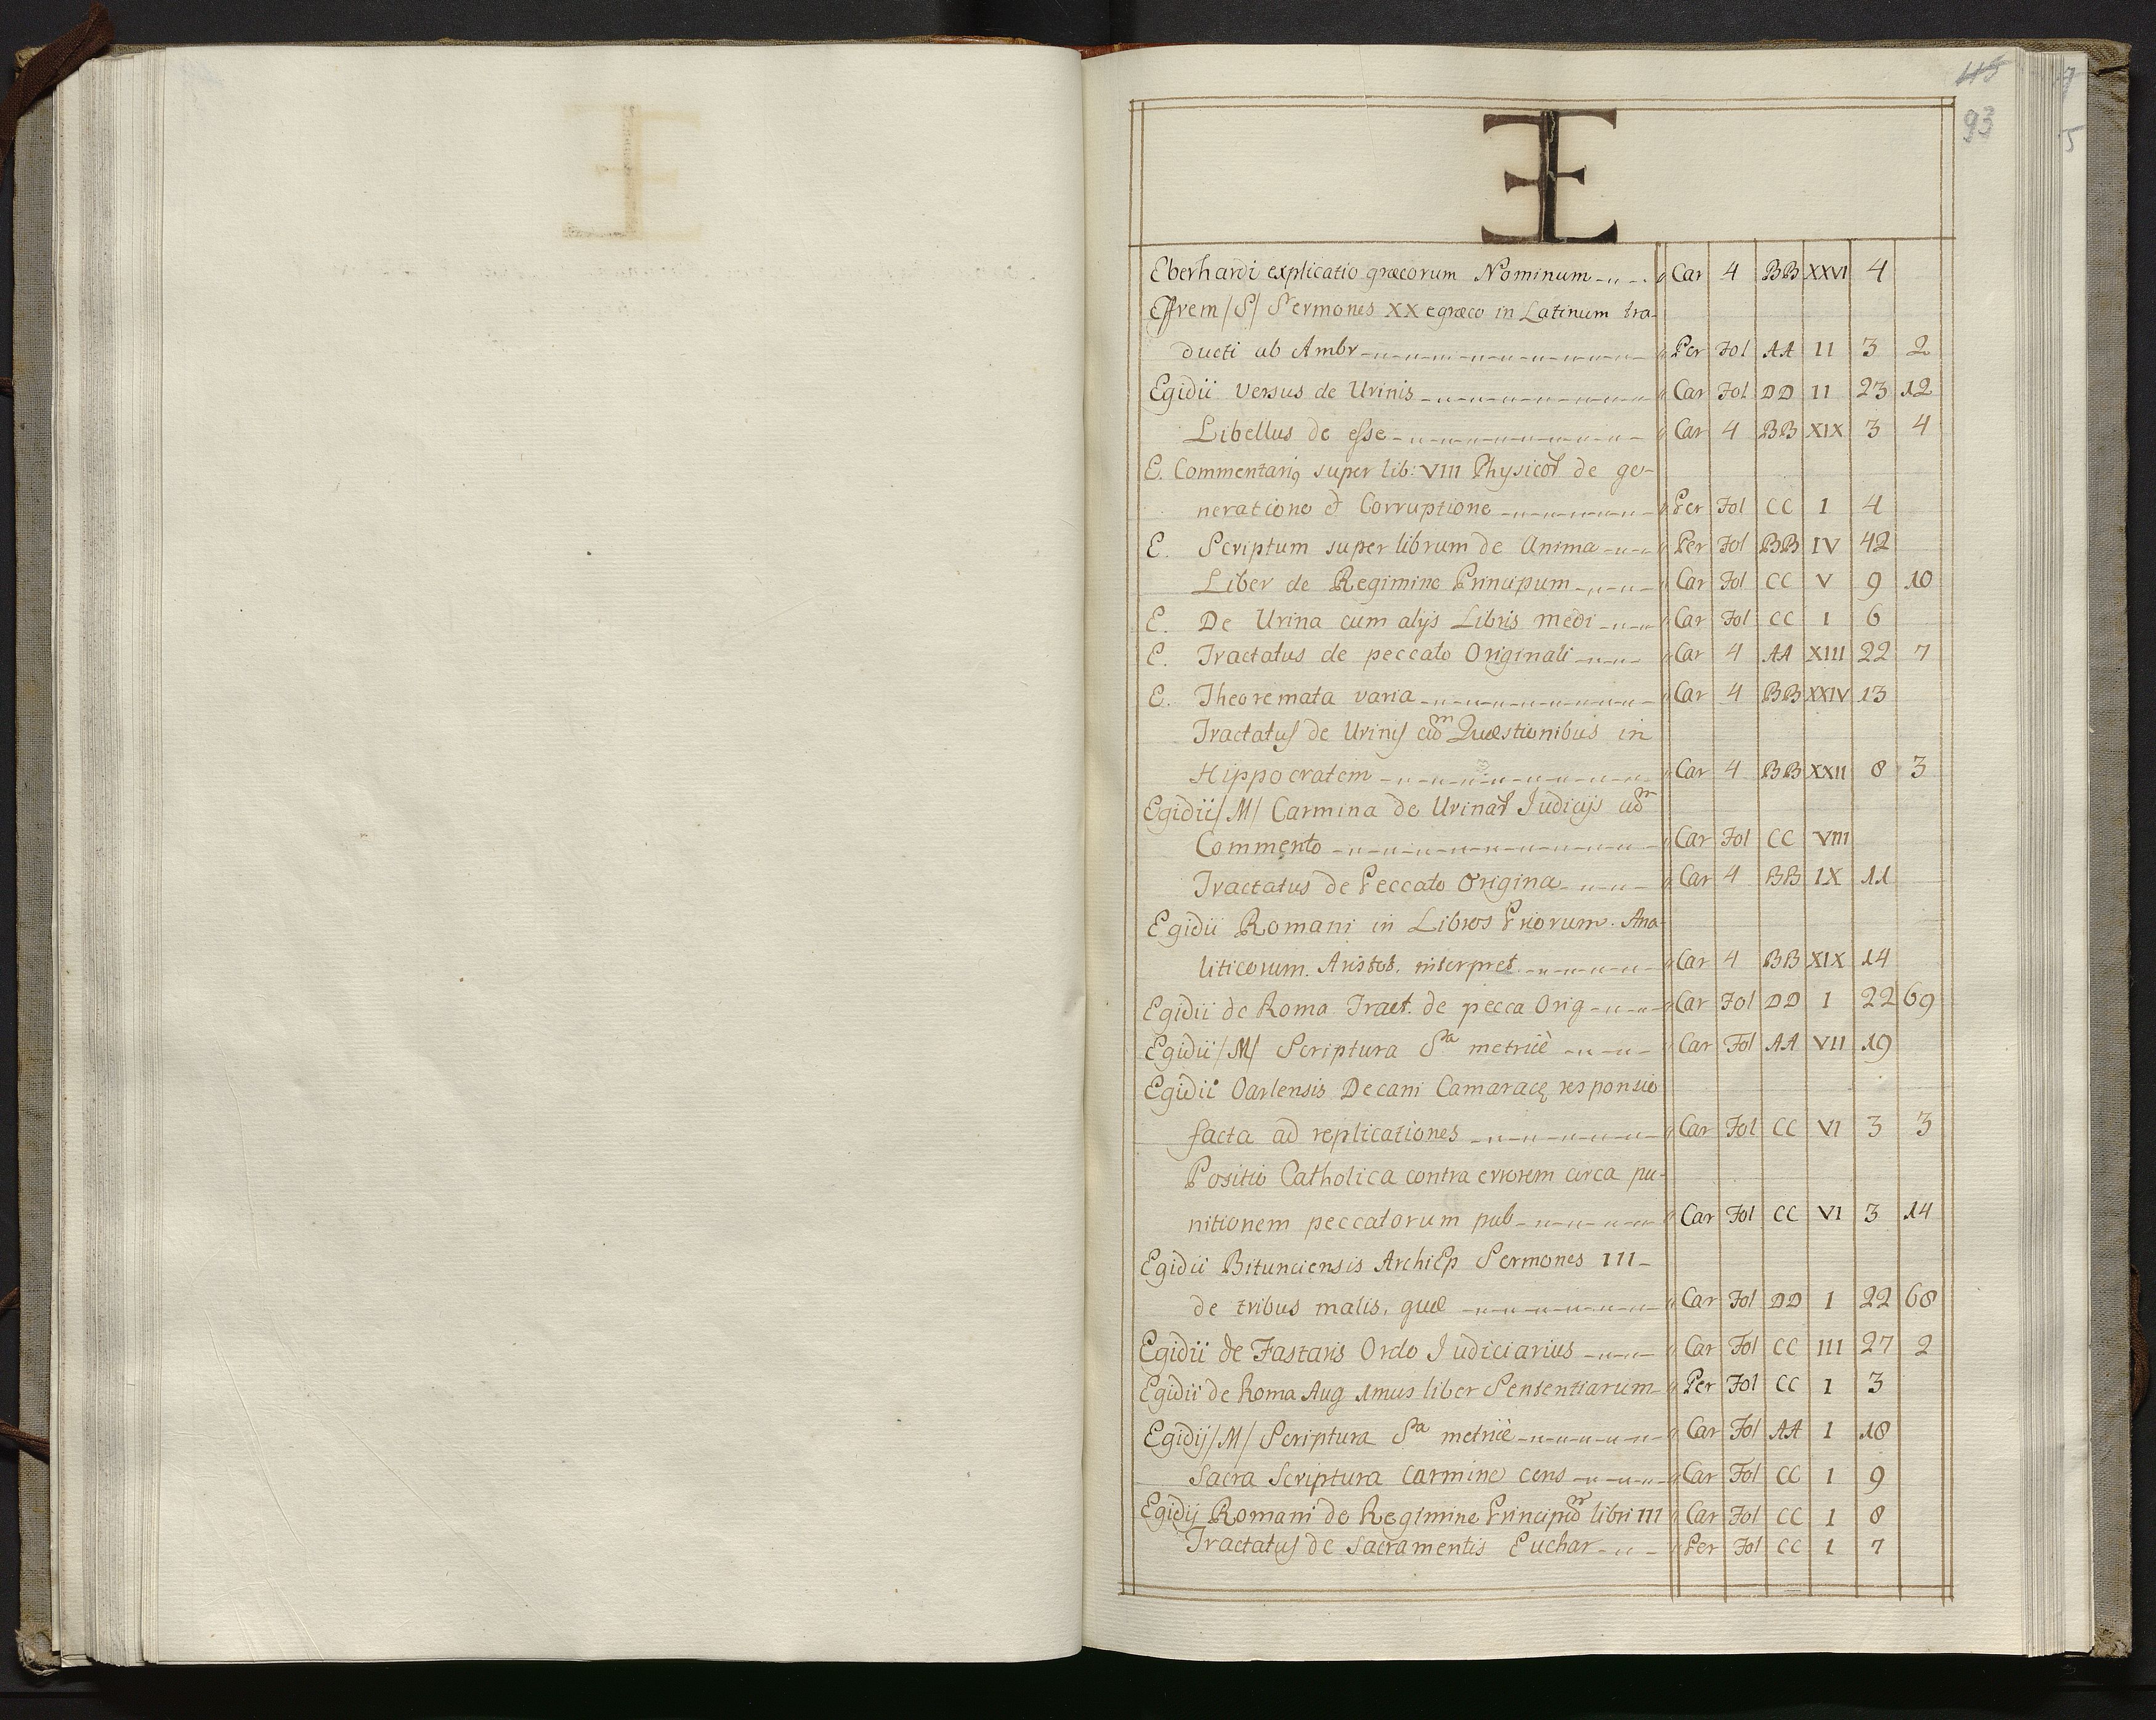 115
93
E
Eberhardi explicatio græcorum Nominum Car 4 BB XXVI 4
Effrem /S/ Sermones XX e græco in Latinum tra-
ducti ab Ambr Per Fol AA II 3 2
Egidii versus de Urinis Car Fol DD II 23 12
Libellus de esse Car 4 BB XIX 3 4
E. Commentariꝰ super lib: VIII Physicoꝝ de ge-
neratione & Corruptione Per Fol CC I 4
E. Scriptum super librum de Anima Per Fol BB IV 42
Liber de Regimine Principum Car Fol CC V 9 10
E. De Urina cum alijs Libris medi Car Fol CC I 6
E. Tractatus de peccato Originali Car 4 AA XIII 22 7
E. Theoremata varia Car 4 BB XXIV 13
Tractatus de Urinis cūm Quæstionibus in
Hippocratem Car 4 BB XXII 8 3
Egidii /M/ Carmina de Urinaꝝ Judicijs cūm
Commento Car Fol CC VIII
Tractatus de Peccato Origina Car 4 BB IX 11
Egidii Romani in Libros Priorum Ana-
liticorum. Aristot. interpret Car 4 BB XIX 14
Egidii de Roma Tract. de pecca Orig Car Fol DD I 22 69
Egidii /M/ Scriptura Sᵃ metricè Car Fol AA VII 19
Egidii Oarlensis Decani Camaracę responsio
facta ad replicationes Car Fol CC VI 3 3
Positio Catholica contra errorem circa pu-
nitionem peccatorum pub Car Fol CC VI 3 14
Egidii Bitunciensis ArchiEp Sermones III
de tribus malis, quæ Car Fol DD I 22 68
Egidii de Fastaris Ordo Judiciarius Car Fol CC III 27 2
Egidii de Roma Aug 1mus liber Sentsentiarum Per Fol CC I 3
Egidij /M/ Scriptura Sᵃ metricè Car Fol AA I 18
Sacra Scriptura carmine cens Car Fol CC I 9
Egidij Romani de Regimine Principūm libri III Car Fol CC I 8
Tractatus de Sacramentis Euchar Per Fol CC I 7